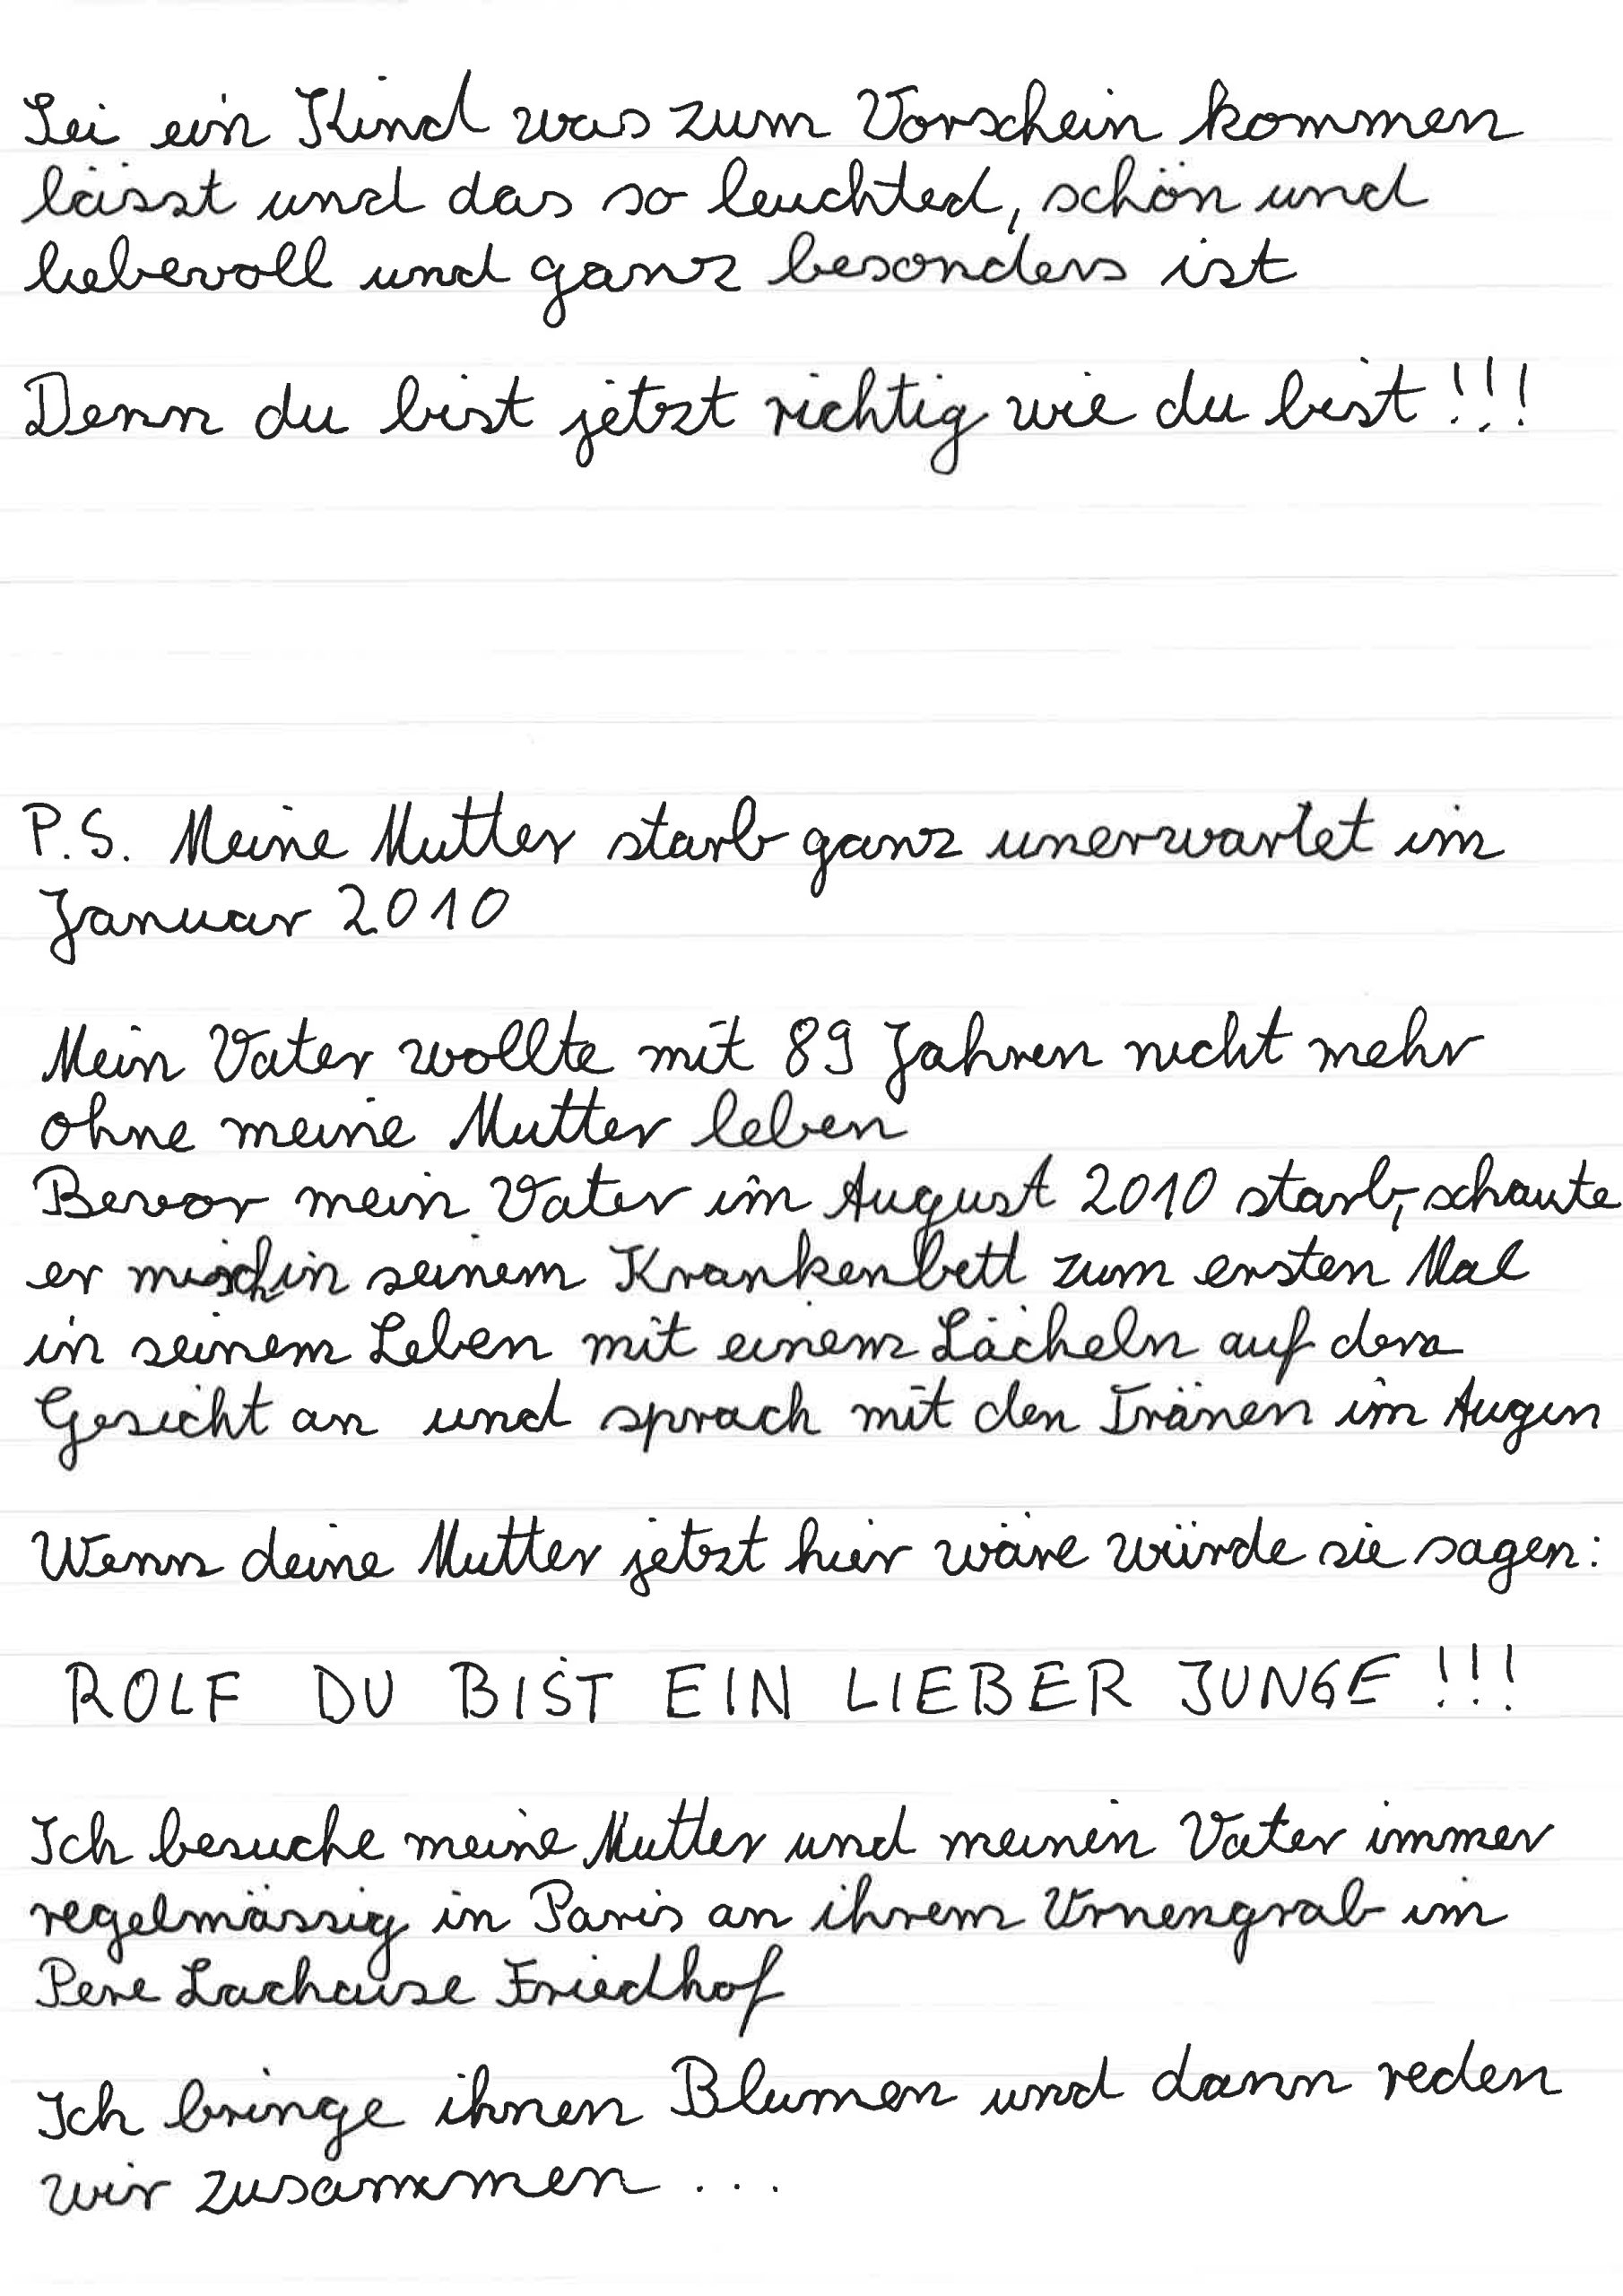 Sei ein Kind was zum Vorschein kommen
lässt und das so leuchted, schön und
liebevoll und ganz besonders ist
Denn du bist jetzt richtig wie du bist!!!
P.S. Meine Mutter starb ganz unerwartet im
Januar 2010
Mein Vater wollte mit 89 Jahren nicht mehr
ohne meine Mutter leben
Bevor mein Vater im August 2010 starb, schaute
er mich in seinem Krankenbett zum ersten Mal
in seinem Leben mit einem Lächeln auf dem
Gesicht an und sprach mit den Tränen im Augen
Wenn deine Mutter jetzt hier wäre würde sie sagen:
ROLF DU BIST EIN LIEBER JUNGE!!!
Ich besuche meine Mutter und meinen Vater immer
regelmässig in Paris an ihrem Urnengrab im
Pere Lachaise Friedhof
Ich bringe ihnen Blumen und dann reden
wir zusammen ...